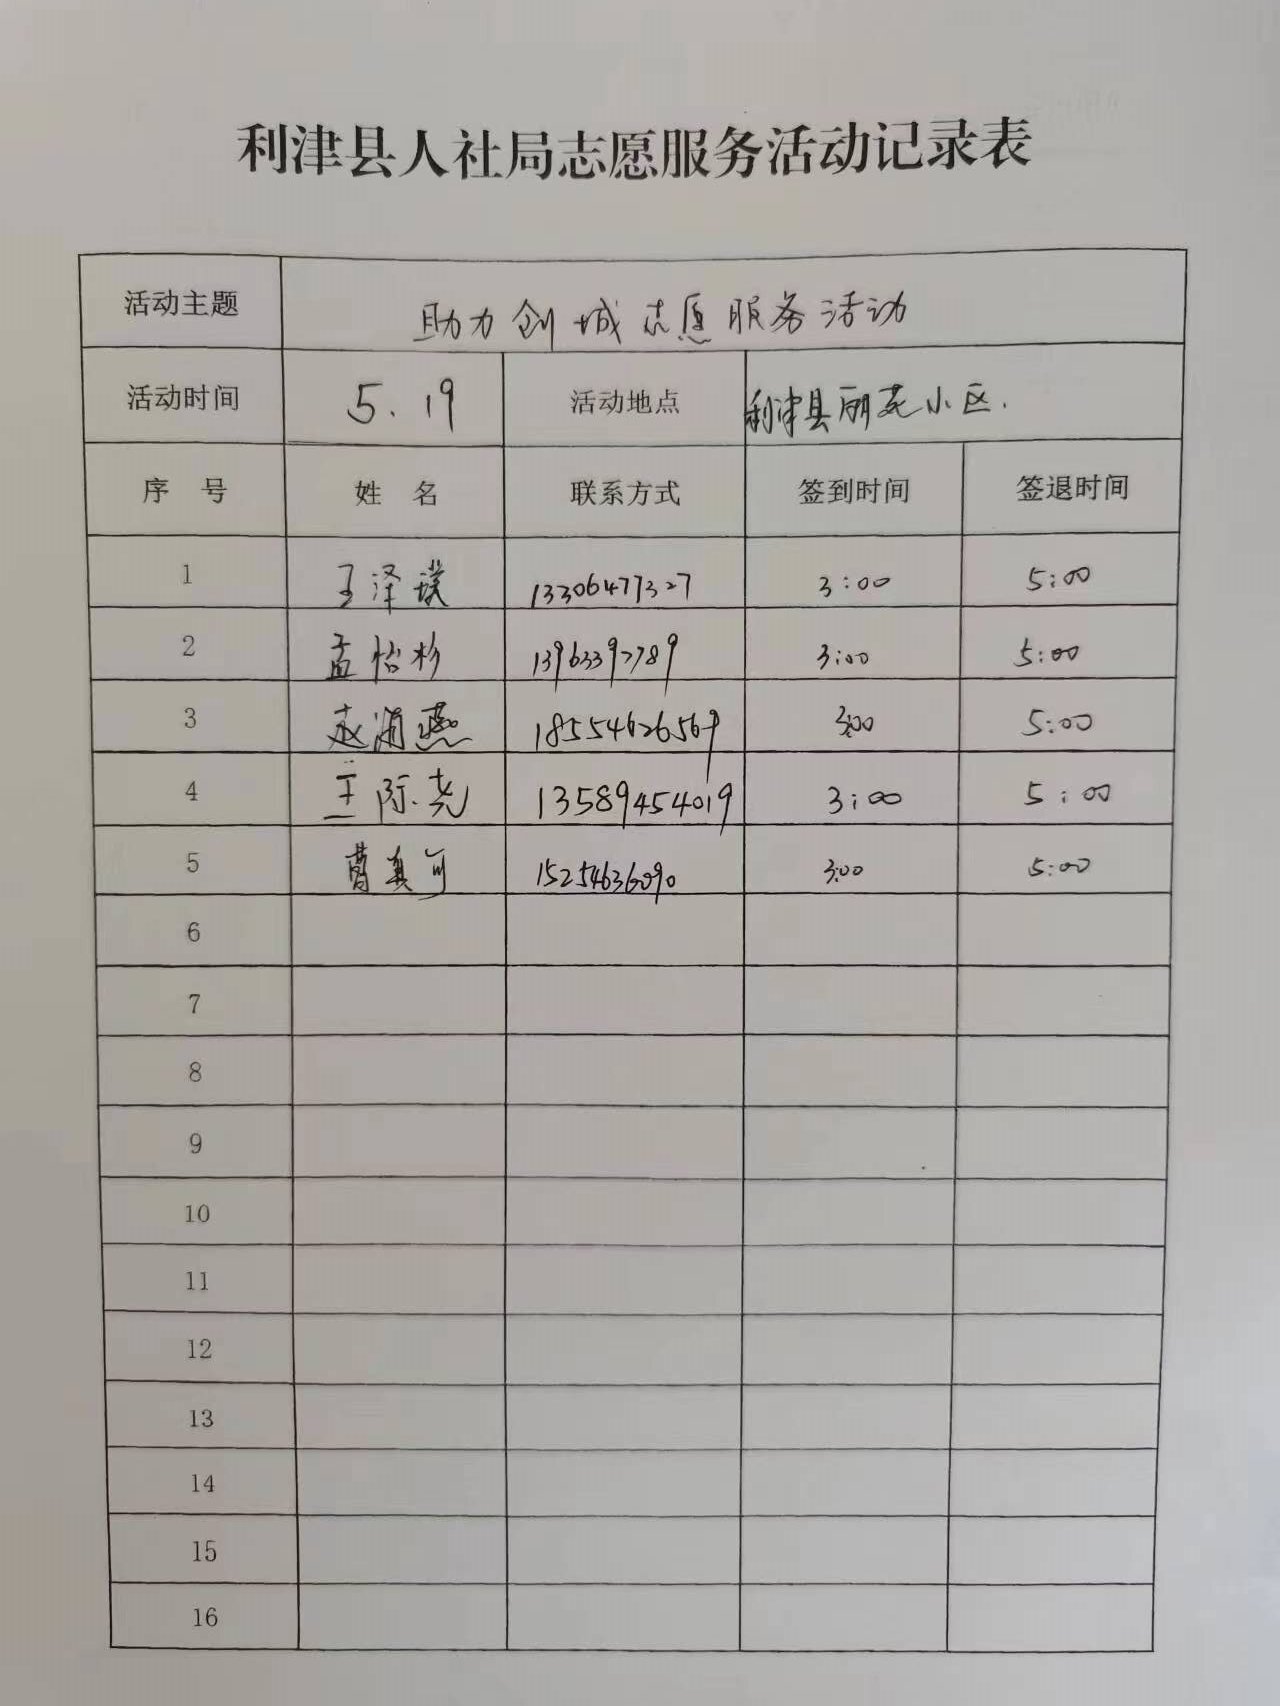 利津县人社局志愿服务活动记录表
活动主题 助力创城志愿服务活动
活动时间 5.19 活动地点 利津县丽苑小区.
序 号 姓 名 联系方式 签到时间 签退时间
1 王泽璞 13306477327 3:00 5:00
2 孟怡杉 13963392789 3:00 5:00
3 赵清燕 18554626569 3:00 5:00
4 王际尧 13589454019 3:00 5:00
5 曹真可 15254636090 3:00 5:00
6
7
8
9
10
11
12
13
14
15
16